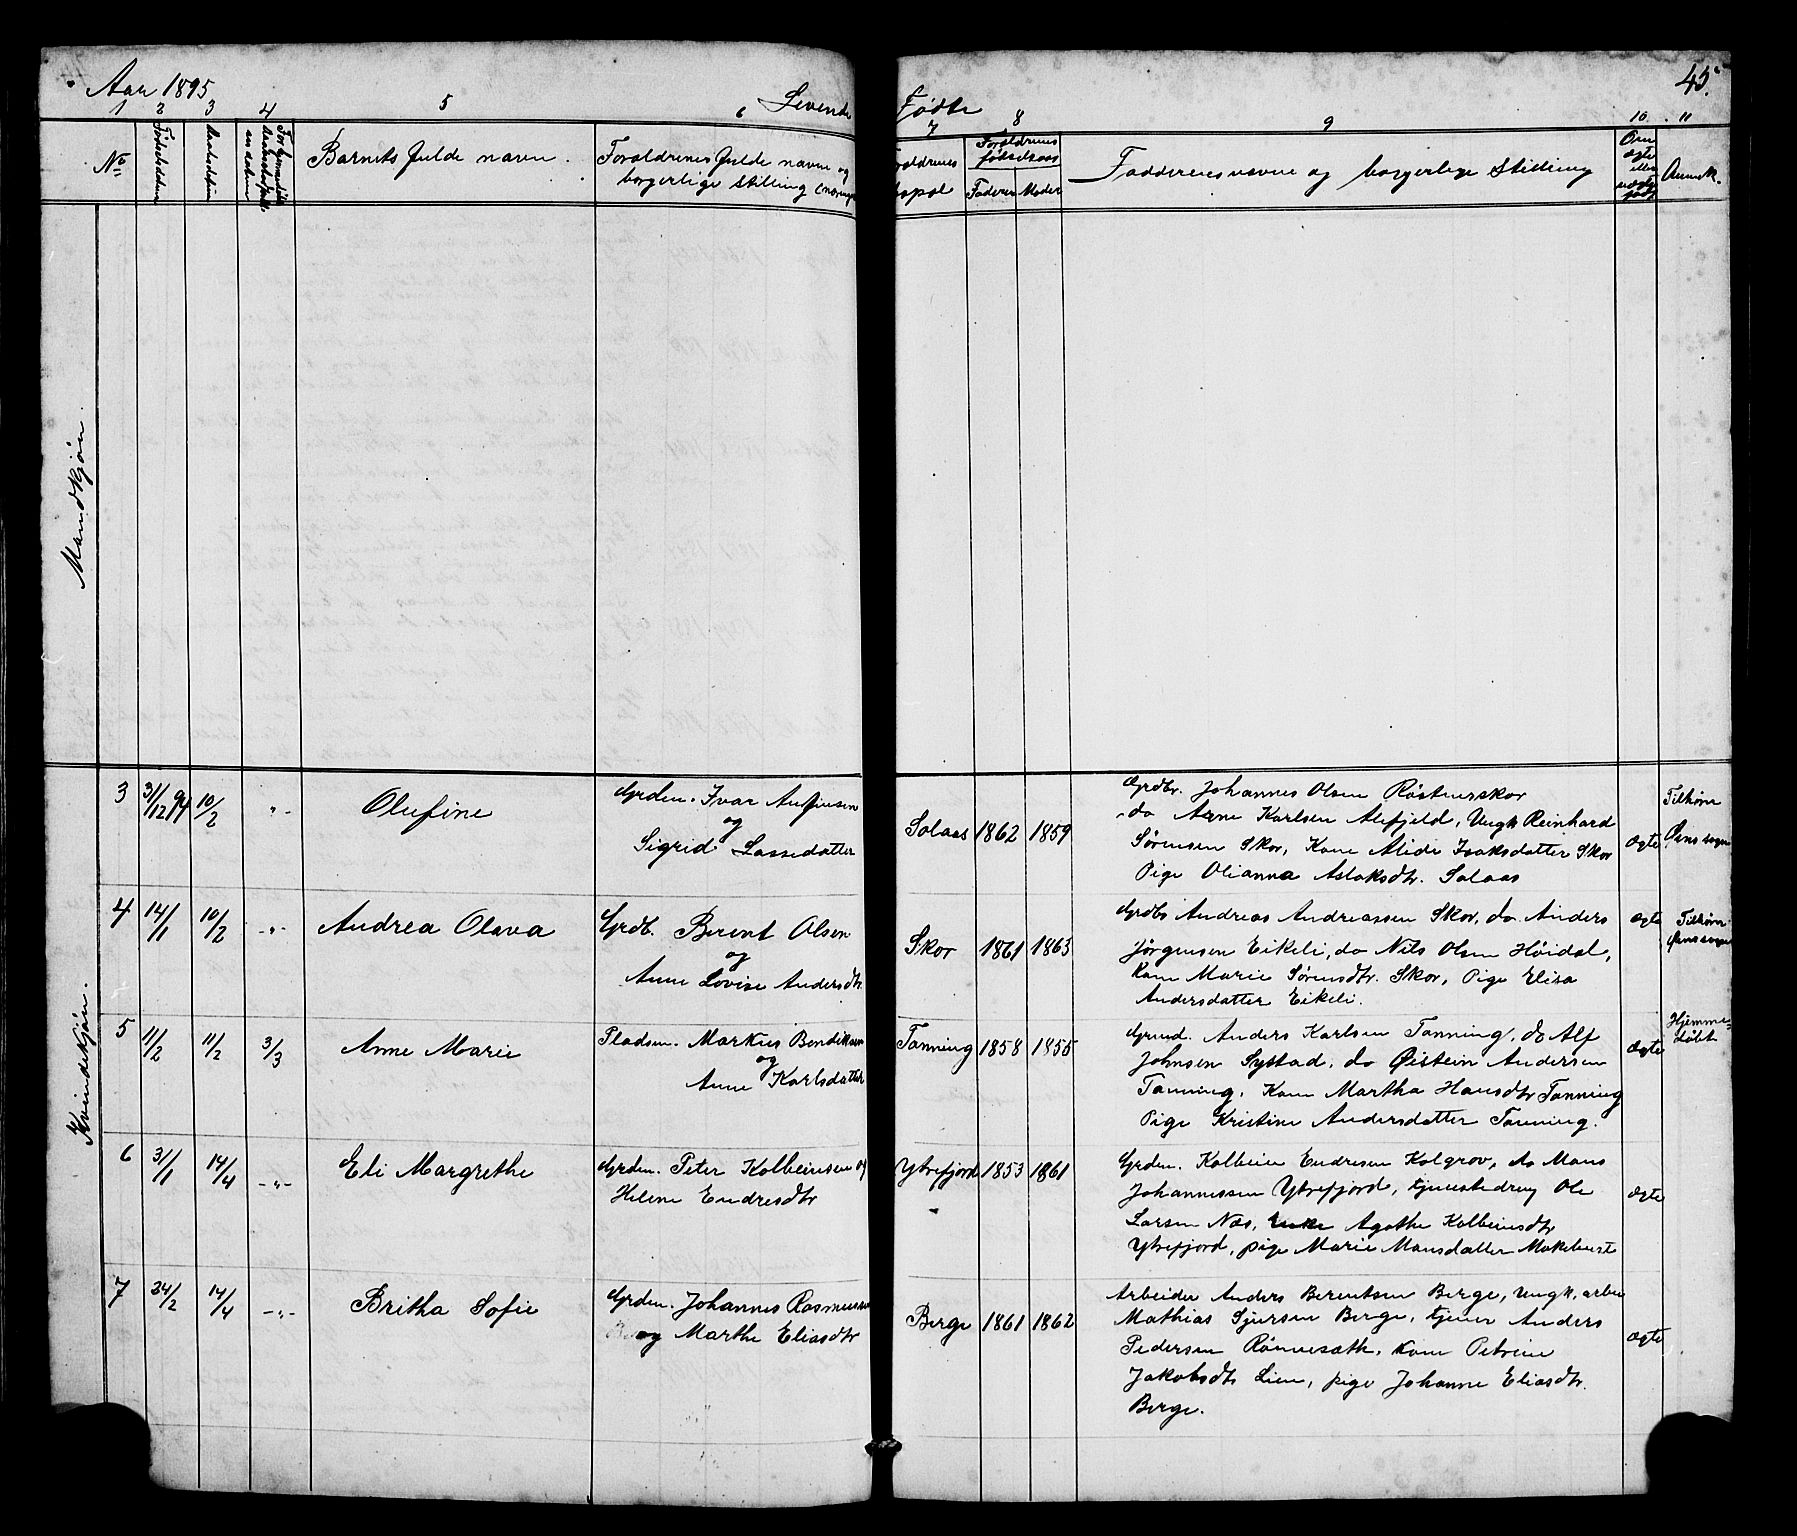 Aar 1895
Levende Fødte
45.
1 2 3 4 5 6 7 8 9 10 11
No
Fødselsdatum
Daabsdatum
Barnets fulde navn.
Forældrenes fulde navne og
borgerlige stilling
Forældrenes
fødselsaar
Faderen Moder
Faddernes navne og borgerlige Stilling
Om
ægte
eller
uægte
født
Anmærk.
Mandkjøn.
Kvindekjøn.
3 31/12 94 10/2 -"- Olufine
Grdm. Ivar Anfinsen
og
Sigrid Lassedatter
Solaas 1862 1859
Grdbr. Johannes Olsen
do Arne Karlsen Alefjeld, Ungk Reinhard
Sørensen Skor, Kone Alida Isaksdatter Skor
Pige Olianna Aslaksdtr. Solaas
ægte
Tilhører
4 14/1 10/2 -"- Andrea Olava
Grdb. Berent Olsen
og
Anne Lovise Andersdtr.
Skor 1861 1863
Grdb Andreas Andreassen Skor, do Anders
Jørgensen Eikeli, do Nils Olsen Høidal,
Kone Marie Sørensdtr. Skor, Pige Elisa
Andersdatter Eikeli.
ægte
Tilhører
5 11/2 11/2 3/3 Anne Marie
Pladsm. Markus Bendiksen
og
Anne Karlsdatter
Tanning 1858 1855
Grmd. Anders Karlsen Tanning, do Alf
Johnsen Systad, do Øistein Andersen
Tanning, Kone Martha Hansdtr Tanning
Pige Kristine Andersdatter Tanning.
ægte
Hjemme=
døbt
6 31/1 14/4 -"- Eli Margrethe
Grdm. Peter Kolbeinsen og
Helene Endresdtr
Ytrefjord 1853 1861
Grdm. Kolbein Endresen Kolgrov, do Mons
Johannessen Ytrefjord, tjenestedreng Ole
Larsen Næs, Enke Agathe Kolbeinsdtr
Ytrefjord, pige Marie Monsdatter
ægte
7 24/2 14/4 -"- Britha Sofie
Grdm. Johannes Rasmussen
og Marthe Eliasdtr
Berge 1861 1862
Arbeider Anders Berentsen Berge, Ungk, arbei
Mathias Sjursen Berge, tjener Anders
Pedersen Rønneseth, Kone Petrine
Jakobsdtr Lien, pige Johanne Eliasdtr.
Berge.
ægte